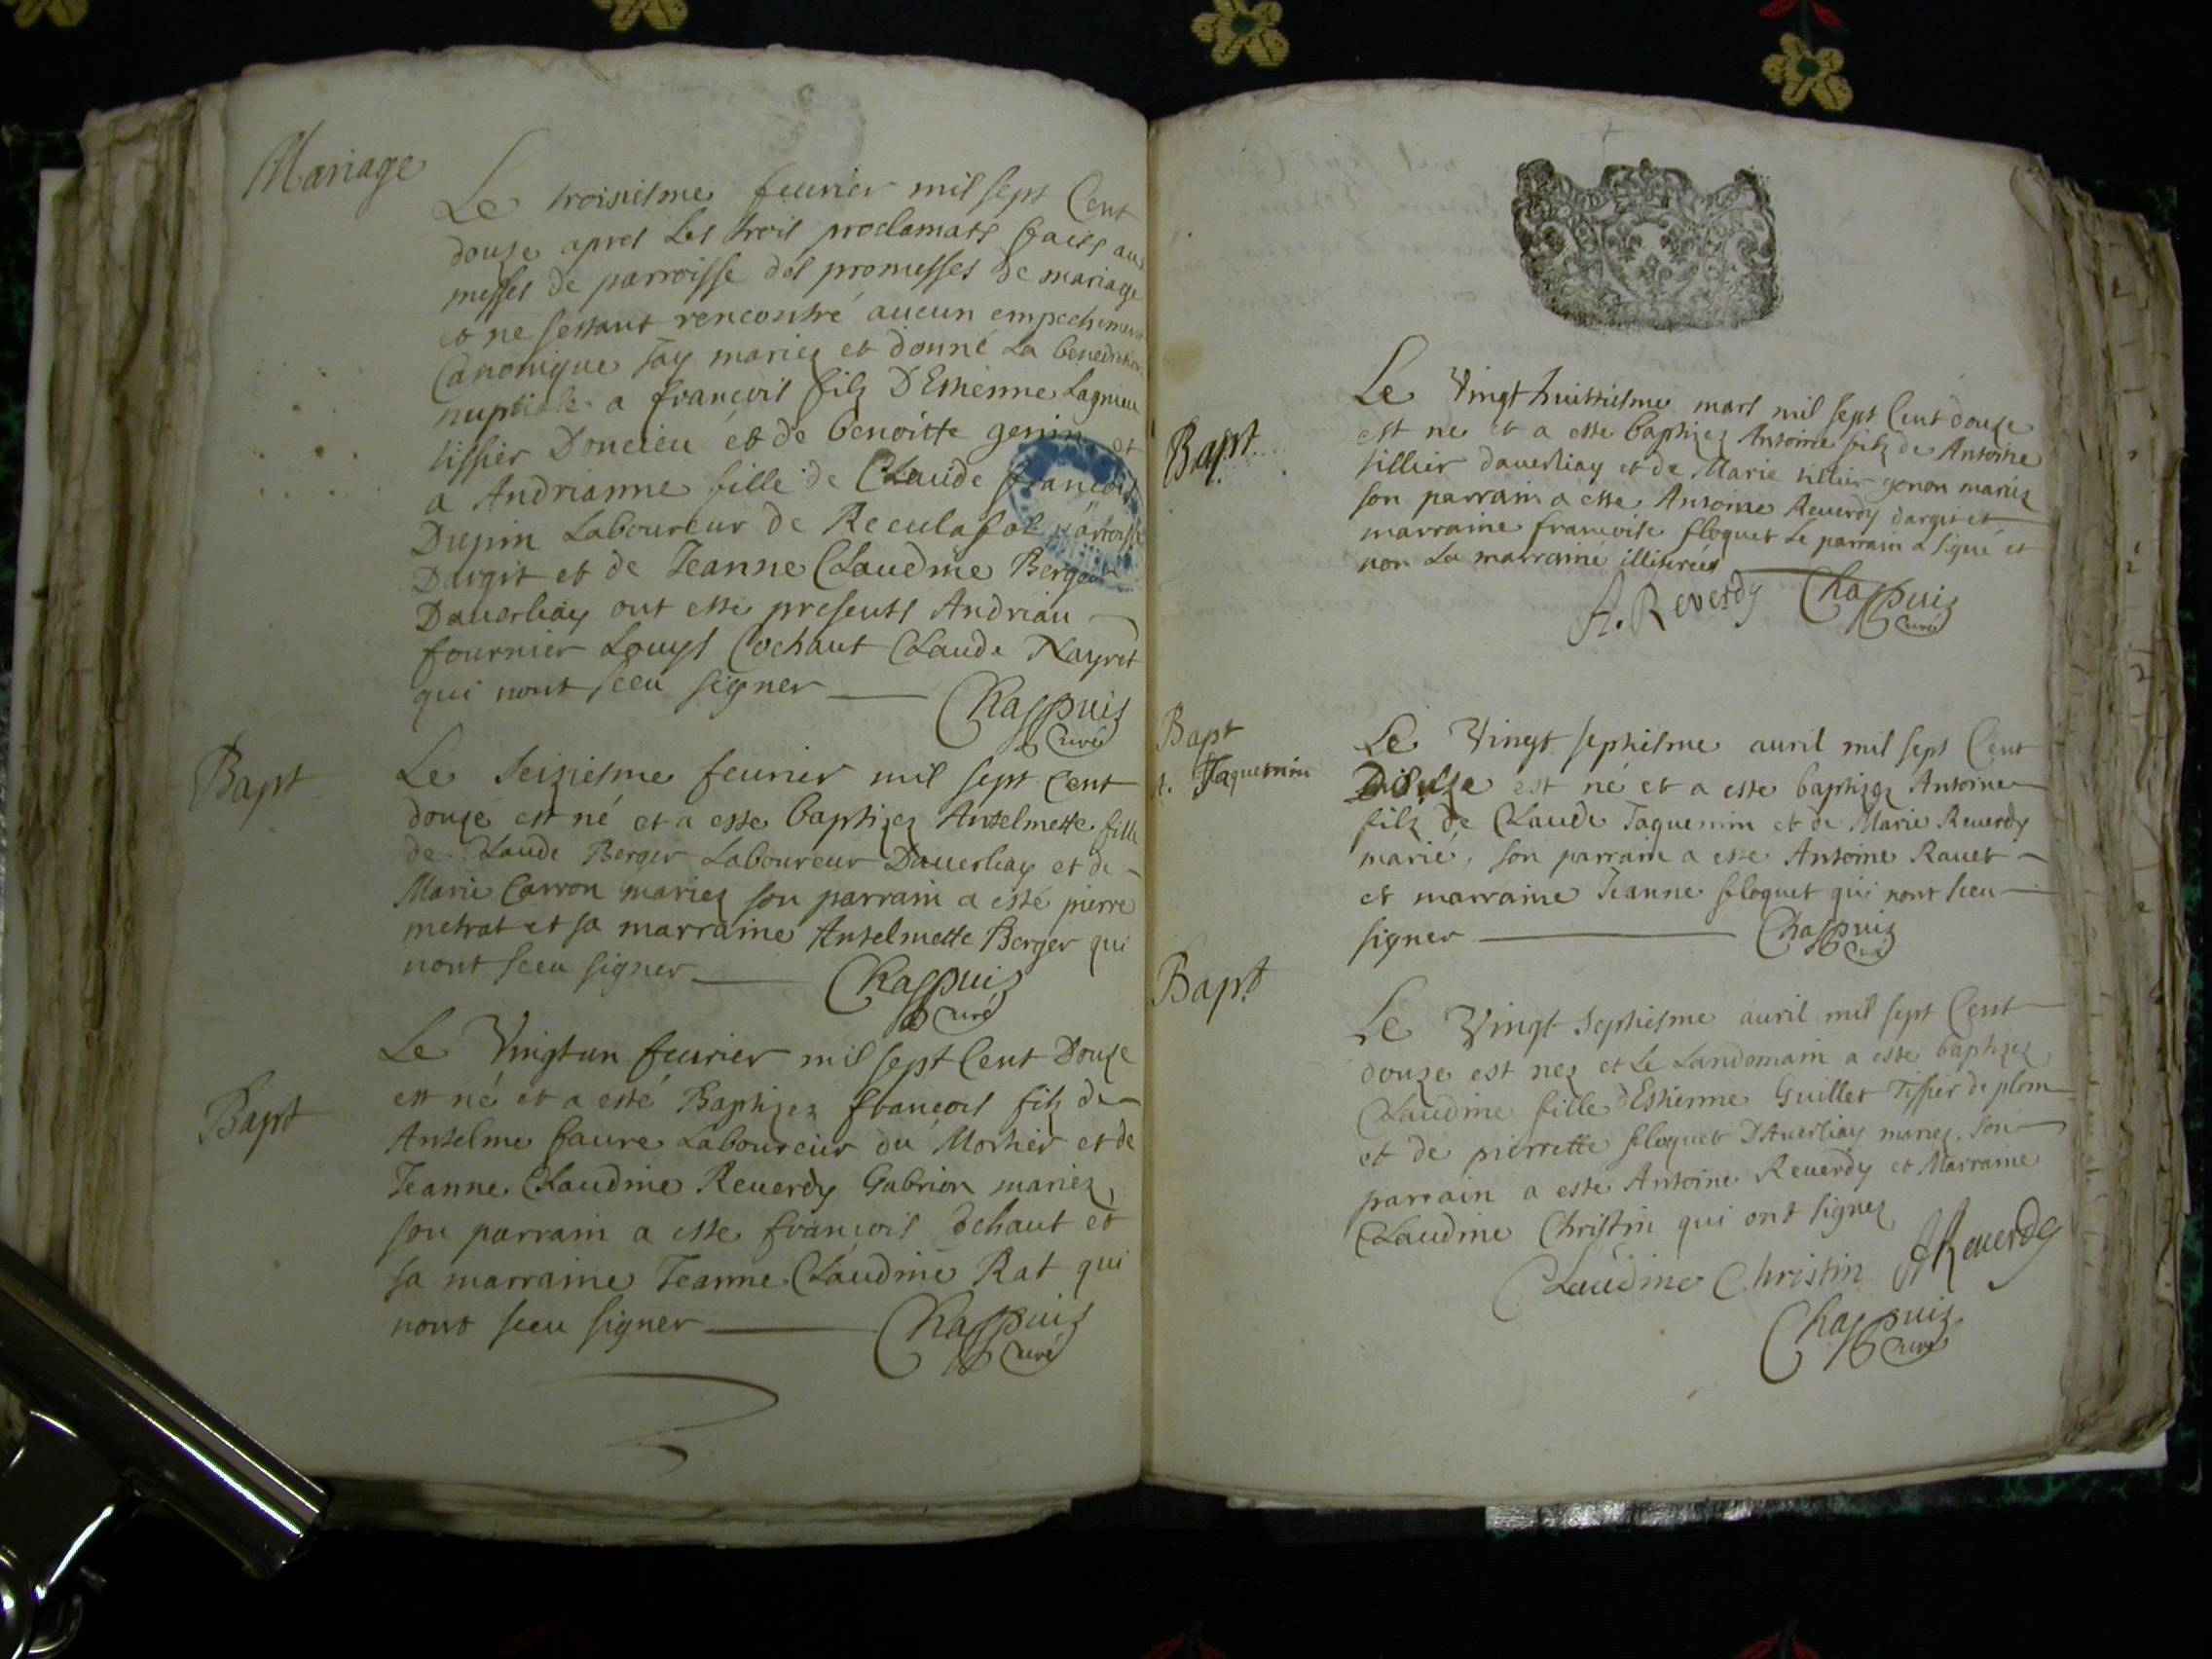 Mariage
Le troisiesme feurier mil sept Cent
douze apres les trois proclamats faits aux
messes de parroisse des promesses de mariage
et ne sestant rencontré aucun empechement
Canonique Jay mariez et donné la benediction
nuptialle a françois filz DEstienne Lagnieu
tissier Doncieu et de benoitte genin et
a Andrianne fille de Claude françois
Dupin Laboureur de Reculafol parroisse
Dargit et de Jeanne Claudine Berger
Dauerliay ont esté presents Andrian
fournier Louys Cochaut Claude Nayret
qui nont sceu signer
Chappuiz
Curé
Bapt
Le Seiziesme feurier mil sept Cent
douze est né et a esse baptizez Antelmette fille
de Claude Berger Laboureur Dauerliay et de
Marie Carron mariez son parrain a esté pierre
metrat et sa marraine Antelmette Berger qui
nont sceu signer
Chappuiz
Curé
Bapt
Le Vingtun feurier mil sept Cent Douze
est né et a esté Baptizez françois filz de
Antelme faure Laboureur du Mortier et de
Jeanne Claudine Reuerdy Gabrion mariez,
son parrain a este françois Dchaut et
sa marraine Jeanne Claudine Rat qui
nont sceu signer
Chappuiz
Curé
Bapt
Le Vingt huittiesme mars mil sept Cent douze
est ne et a este baptizez Antoine filz de Antoine
tillier dauerliay et de Marie tillier genon mariez
son parrain a este Antoine Reuerdy dargit et
marraine françoise floquet Le parrain a signé et
non La marraine illiterée
A. Reverdy Chappuiz
Curé
Bapt
A. Jaquemin
Le Vingt septiesme auril mil sept Cent
Douze est né et a este baptizez Antoine
filz de Claude Jaquemin et de Marie Reuerdy
marié, son parrain a este Antoine Rauet
et marraine Jeanne floquet qui nont sceu
signer
Chappuiz
Curé
Bapt
Le Vingt Septiesme auril mil sept Cent
douze est nez et Le Landomain a este baptizez
Claudine fille dEstienne Guillet Tissier de plom
et de pierrette floquet DAuerliay mariez, son
parrain a este Antoine Reuerdy et Marraine
Claudine Christin qui ont signez
Claudine Christin AReuerdy
Chappuiz
Curé